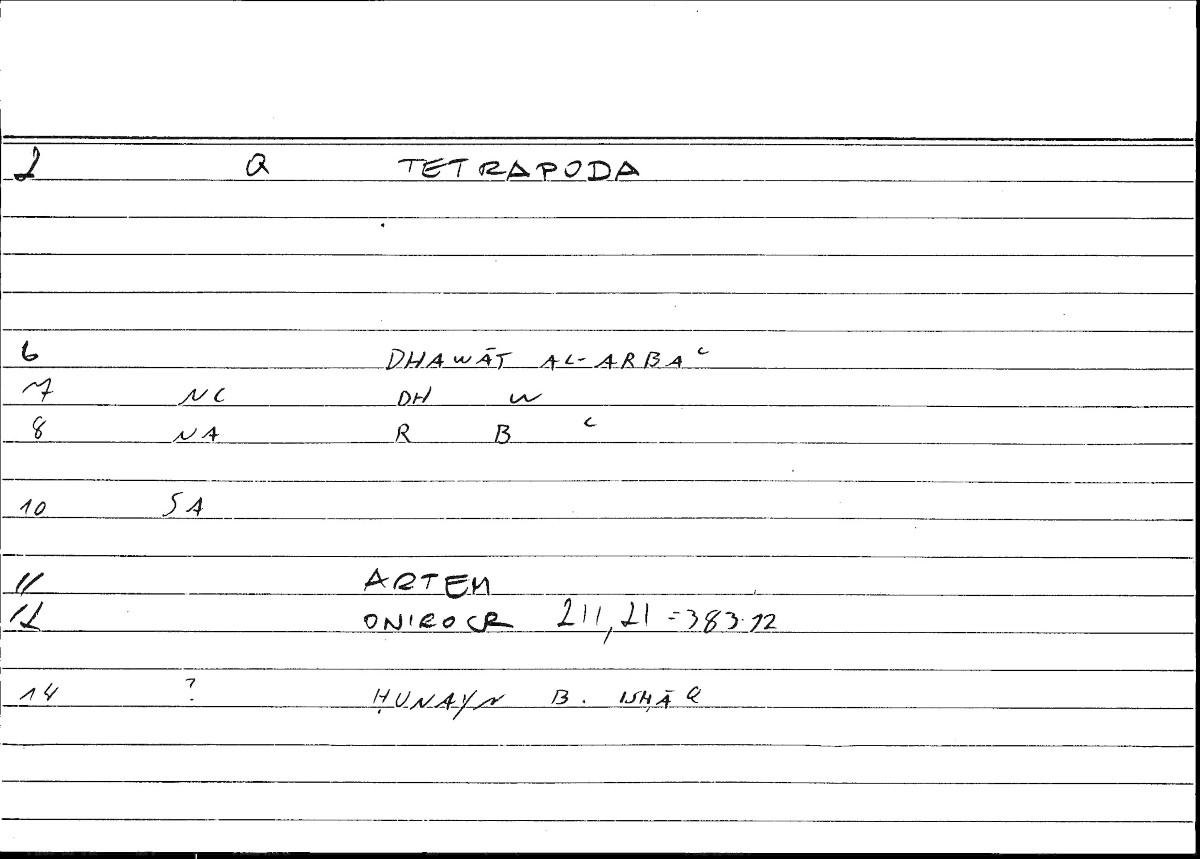 2 Q TETRAPODA
6 DHAWĀT AL-ARBAᶜ
7 NC DH W
8 NA R B ᶜ
10 SA
11 ARTEM
12 ONIROCR 211,21 = 383.12
14 ? ḤUNAYN B. ISḤĀQ